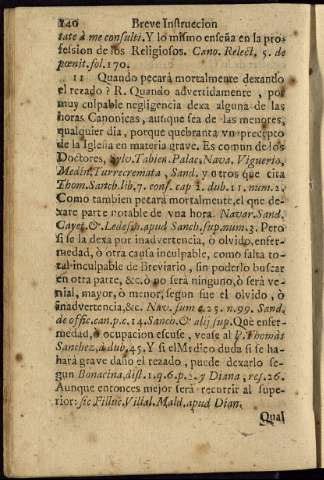 240 Breve Instruccion
tate à me consulti. Y lo mismo enseña en la pro-
fession de los Religiosos. Cano. Relect. 5. de
pœnit. fol. 170.
11 Quando pecará mortalmente dexando
el rezado? R. Quando advertidamente, por
muy culpable negligencia dexa alguna de las
horas Canonicas, aunque sea de las menores,
qualquier dia, porque quebranta vn precepto
de la Iglesia en materia grave. Es comun de los
Doctores, Sylv. Tabien. Palac. Nava. Viguerio,
Medin. Turrecremata, Sand. y otros que cita
Thom. Sanch. lib. 7. cons. cap 2. dub. 11. num. 2.
Como tambien pecará mortalmente, el que de-
xare parte notable de vna hora. Navar. Sand.
Cayet. & Ledesm. apud Sanch. sup. num. 3. Pero
si se la dexa por inadvertencia, ò olvido, enfer-
medad, ò otra causa inculpable, como falta to-
tal inculpable de Breviario, sin poderlo buscar
en otra parte, &c. ò no será ninguno, ò será ve-
nial, mayor, ò menor, segun fue el olvido, ò
inadvertencia, &c. Nav. sum c. 25. n. 99. Sand.
de offic. can. p. c. 14. Sanch. & alij sup. Que enfer-
medad, ò ocupacion escuse, vease al P. Thomàs
Sanchez, à dub. 45. Y si el Medico duda si se ha-
hará grave daño el rezado, puede dexarlo se-
gun Bonacina, dist. 1. q. 6. p. 2. y Diana, res. 26.
Aunque entonces mejor será recurrir al supe-
rior: sic Filliuc. Villal. Mald. apud Dian.
Qual